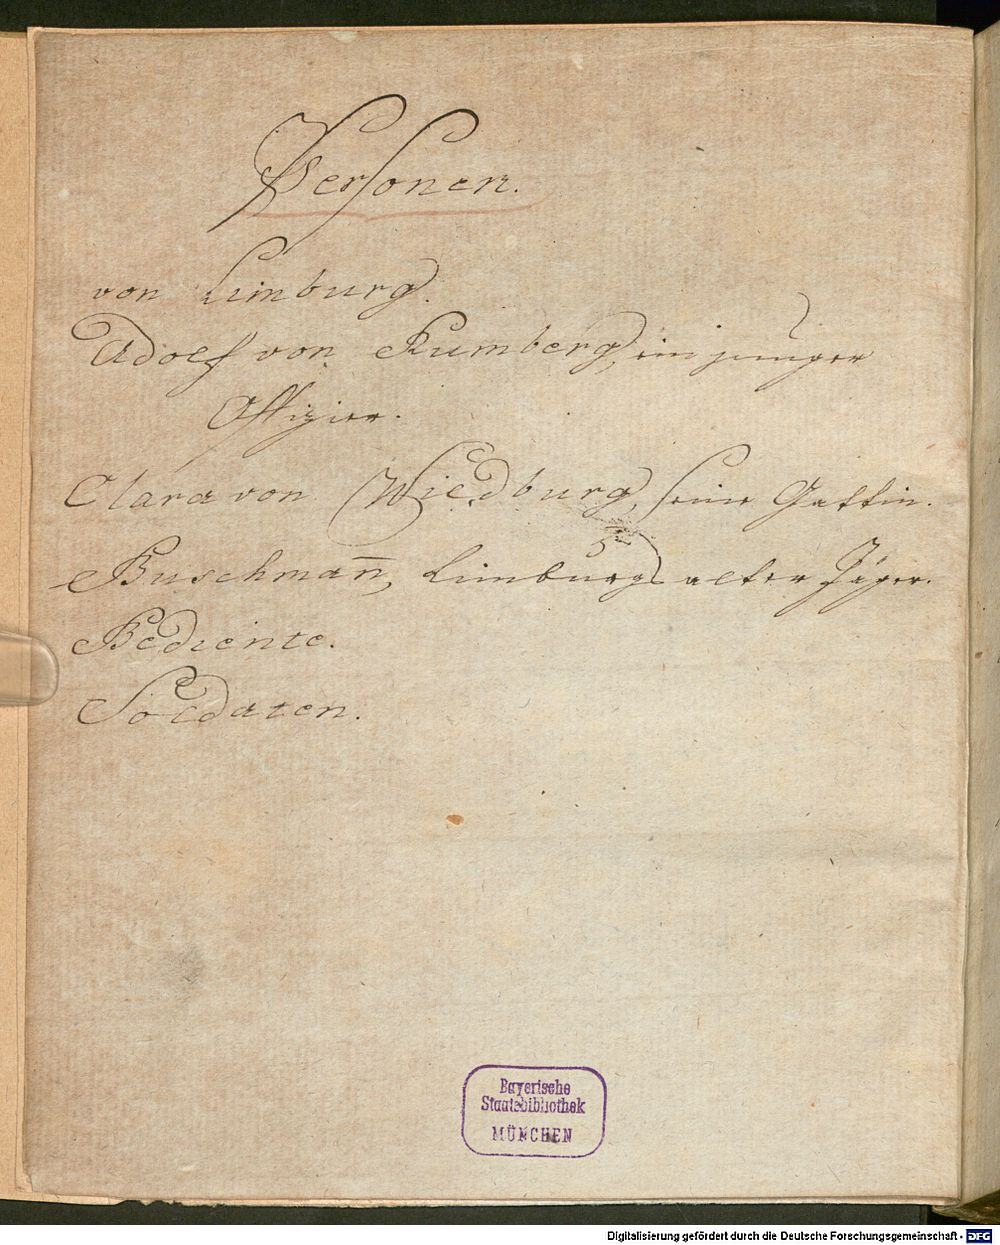 Personen.
von Limburg.
Adolf von Rumberg, ein junger
Offizier.
Clara von Wiedburg, seine Gattin.
Buschman̄, Limburgs alter Jäger.
Bediente.
Soldaten.
Bayerische
Staatsbibliothek
MÜNCHEN
Digitalisierung gefördert durch die Deutsche Forschungsgemeinschaft - DFG